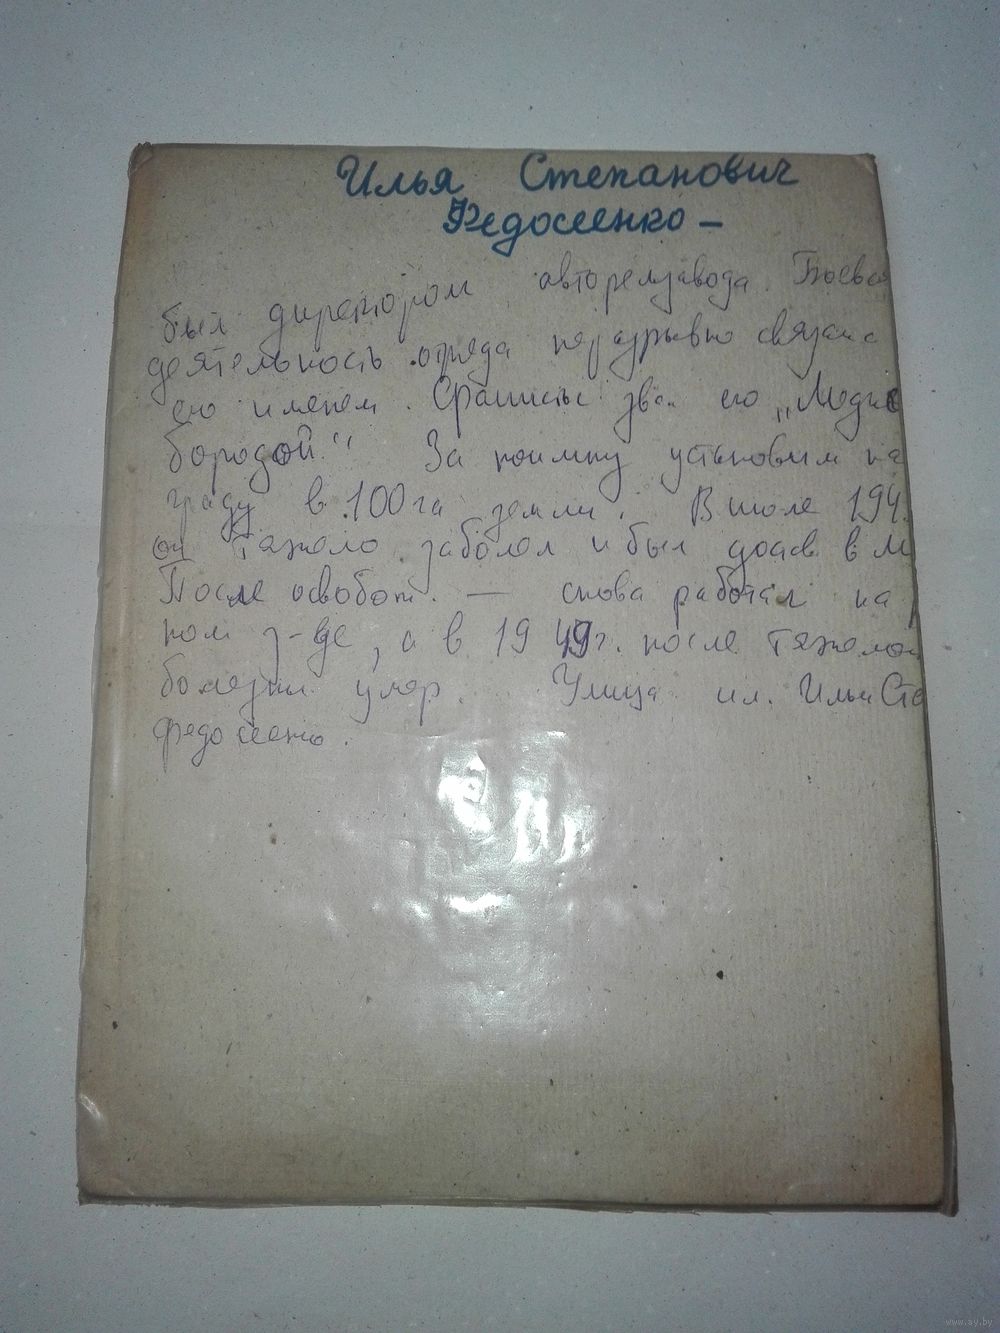 Илья Степанович
Федосеенко –
был директором авторемзавода. Боевая
деятельность отряда неразрывно связана с
его именем. Фашисты звали его „Медной
бородой". За поимку установили на
граду в 100 га земли. В июле 194
он тяжело заболел и был достав в М
После освобож. — снова работал на р
ном з-де, а в 1949г. после тяжелой
болезни умер. Улица им. Ильи Сте
Федосеенко.
www.ay.by